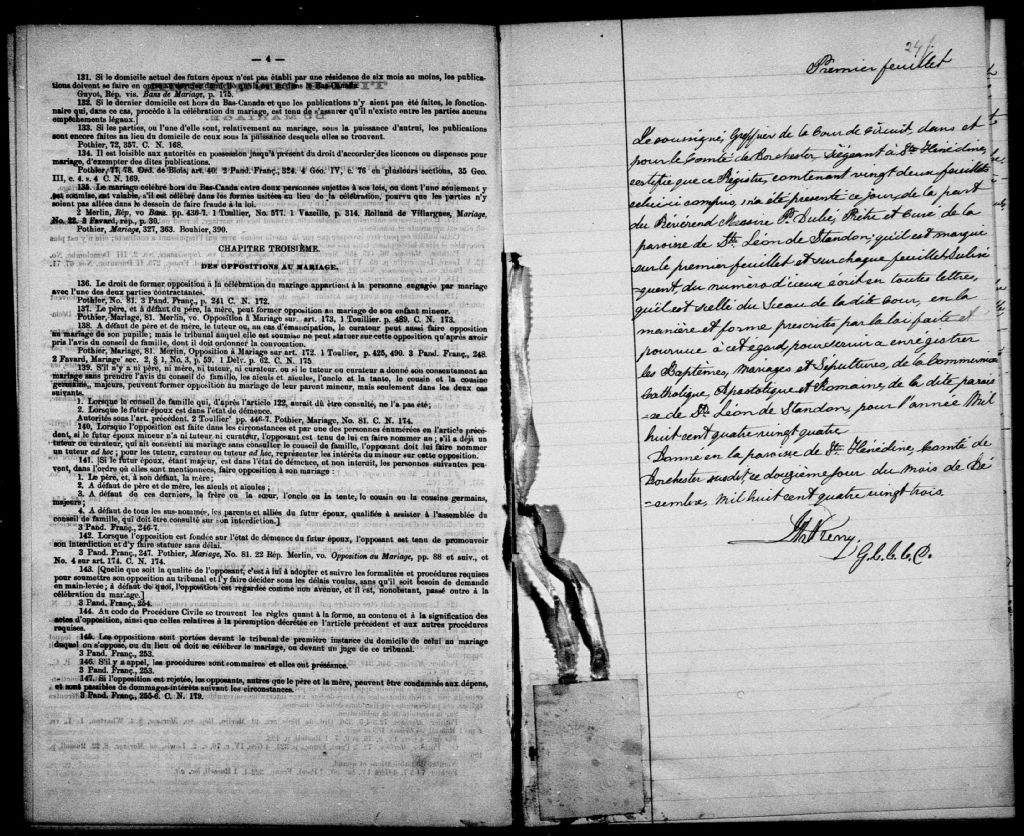 — 4 —
131. Si le domicile actuel des futurs époux n'est pas établi par une résidence de six mois au moins, les publica-
tions doivent se faire en outre au dernier domicile qu'ils ont eu dans le Bas-Canada.
Guyot, Rép. vis. Bans de Mariage, p. 175.
132. Si le dernier domicile est hors du Bas-Canada et que les publications n'y aient pas été faites, le fonction-
naire qui, dans ce cas, procède à la célébration du mariage, est tenu de s'assurer qu'il n'existe entre les parties aucuns
empêchements légaux.]
133. Si les parties, ou l'une d'elle sont, relativement au mariage, sous la puissance d'autrui, les publications
sont encore faites au lieu du domicile de ceux sous la puissance desquels elles se trouvent.
Pothier, 72, 357. C. N. 168.
134. Il est loisible aux autorités en possession jusqu'à présent du droit d'accorder des licences ou dispenses pour
mariage, d'exempter des dites publications.
Pothier, 77, 78. Ord. de Blois, art. 40. 2 Pand. Franç., 324. 4 Geo. IV, c. 76 en plusieurs sections, 35 Geo.
III, c. 4. s. 4 C. N. 169.
135. Le mariage célébré hors du Bas-Canada entre deux personnes sujettes à ses lois, ou dont l'une seulement y
est soumise, est valable, s'il est célébré dans les formes usitées au lieu de la célébration, pourvu que les parties n'y
soient pas allées dans le dessein de faire fraude à la loi.
2 Merlin, Rép, vo Bans. pp. 436-7. 1 Toullier, No. 577. 1 Vazeille, p. 314. Rolland de Villargues, Mariage,
No. 22. 3 Favard, rép., p. 30.
Pothier, Mariage, 327, 363. Bouhier, 390.
CHAPITRE TROISIÈME.
DES OPPOSITIONS AU MARIAGE.
136. Le droit de former opposition à la célébration du mariage appartient à la personne engagée par mariage
avec l'une des deux parties contractantes.
Pothier, No. 81. 3 Pand. Franç., p. 241 C. N. 172.
137. Le père, et à défaut du père, la mère, peut former opposition au mariage de son enfant mineur.
Pothier, Mariage, 81. Merlin, vo. Opposition à Mariage sur. art. 173, 1 Toullier, p. 489. C. N. 173.
138. A défaut de père et de mère, le tuteur ou, au cas d'émancipation, le curateur peut aussi faire opposition
au mariage de son pupille; mais le tribunal auquel elle est soumise ne peut statuer sur cette opposition qu'après avoir
pris l'avis du conseil de famille, dont il doit ordonner la convocation.
Pothier, Mariage, 81. Merlin, Opposition à Mariage sur art. 172. 1 Toullier, p. 425, 490. 3 Pand. Franç., 248.
2 Favard, Mariage sec. 2, § 1, No. 3, p. 59. 1 Delv. p. 62. C. N. 175.
139. S'il n'y a ni père, ni mère, ni tuteur, ni curateur, ou si le tuteur ou curateur a donné son consentement au
mariage sans prendre l'avis du conseil de famille, les aïeuls et aïeules, l'oncle et la tante, le cousin et la cousine
germains, majeurs, peuvent former opposition au mariage de leur parent mineur, mais seulement dans les deux cas
suivants.
1. Lorsque le conseil de famille qui, d'après l'article 122, aurait dû être consulté, ne l'a pas été;
2. Lorsque le futur époux est dans l'état de démence.
Autorités sous l'art. précédent. 2 Toullier pp. 446-7. Pothier, Mariage, No. 81. C. N. 174.
140, Lorsque l'opposition est faite dans les circonstances et par une des personnes énumérées en l'article précé-
dent, si le futur époux mineur n'a ni tuteur ni curateur, l'opposant est tenu de lui en faire nommer un; s'il a déjà un
tuteur ou curateur, qui ait consenti au mariage sans consulter le conseil de famille, l'opposant doit lui faire nommer
un tuteur ad hoc; pour les tuteur, curateur ou tuteur ad hoc, représenter les intérêts du mineur sur cette opposition.
141. Si le futur époux, étant majeur, est dans l'état de démence, et non interdit, les personnes suivantes peu-
vent, dans l'ordre où elles sont mentionnées, faire opposition à son mariage:
1. Le père, et, à son défaut, la mère;
2. A défaut de père et de mère, les aïeuls et aïeules;
3. A défaut de ces derniers, la frère ou la sœur, l'oncle ou la tante, le cousin ou la cousine germains,
majeurs;
4. A défaut de tous les sus-nommés, les parents et alliés du futur époux, qualifiés à assister à l'assemblée du
conseil de famille, qui doit être consulté sur son interdiction.]
3 Pand. Franç., 246-7.
142. Lorsque l'opposition est fondée sur l'état de démence du futur époux, l'opposant est tenu de promouvoir
son interdiction et d'y faire statuer sans délai.
3 Pand. Franç., 247. Pothier, Mariage, No. 81. 22 Rép. Merlin, vo. Opposition au Mariage, pp. 88 et suiv., et
No. 4 sur art. 174. C. N. 174.
143. [Quelle que soit la qualité de l'opposant, c'est à lui à adopter et suivre les formalités et procédures requises
pour soumettre son opposition au tribunal et l'y faire décider sous les délais voulus, sans qu'il soit besoin de demande
en main-levée; à défaut de quoi, l'opposition est regardée comme non avenue, et il est, nonobstant, passé outre à la
célébration du mariage.]
3 Pand. Franç., 254.
144. Au code de Procédure Civile se trouvent les règles quant à la forme, au contenu et à la signification des
actes d'opposition, ainsi que celles relatives à la péremption décrétée en l'article précédent et aux autres procédures
requises.
145. Les oppositions sont portées devant le tribunal de première instance du domicile de celui au mariage
duquel on s'oppose, ou du lieu où doit se célébrer le mariage, ou devant un juge de ce tribunal.
3 Pand. Franç., 253.
146. S'il y a appel, les procédures sont sommaires et elles ont préséance.
3 Pand. Franç., 253.
147. Si l'opposition est rejetée, les opposants, autres que le père et la mère, peuvent être condamnés aux dépens,
et sont passibles de dommages-intérêts suivant les circonstances.
3 Pand. Franç., 255-6. C. N. 179.
Premier feuillet
Je soussigné, Greffier de la Cour de Circuit dans et
pour le Comté de Dorchester Siégeant à Ste Hénédine,
certifie que ce Régistre, contenant vingt deux feuillets
celui-ci compris, m'a été présenté ce jour, de la part
du Révérend Messire Ps. Dulie, Prêtre et Curé de la
paroisse de St. Léon de Standon; qu'il est marqué
sur le premier feuillet et sur chaque feuillet subsé
quent du numéro d'iceux écrit en toutes lettres,
qu'il est scellé du Sceau de la dite Cour, en la
manière et forme prescrites par la loi faite et
pourvue à cet égard, pour servir à enrégistrer
les Baptêmes, mariages et Sépultures, de la Communion
Catholique, Apostolique et Romaine, de la dite parois
=se de St. Léon de Standon, pour l'année Mil
huit cent quatre vingt quatre
Donné en la paroisse de Ste. Hénédine, Comté de
Dorchester susdit, ce douzième jour du mois de Dé
=cembre, Mil huit cent quatre vingt trois.
G.C.C.C.D.